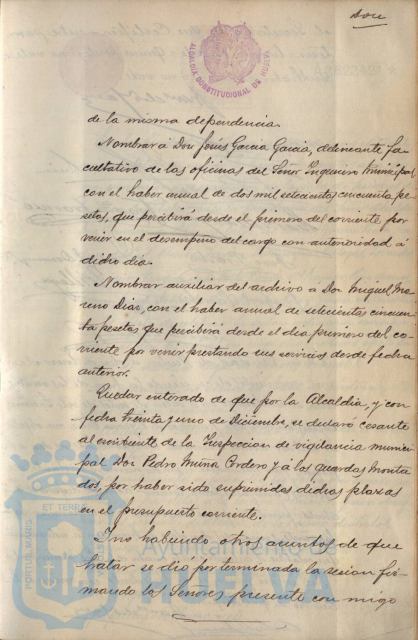 Doce
ALCALDIA CONSTITUCIONAL DE HUELVA
de la misma dependencia.
Nombrar á Don Jesús Garcia Garcia, delineante fa-
cultativo de las oficinas del Señor Ingeniero Municipal,
con el haber anual de dos mil setecientas cincuenta pe-
setas, que percibirá desde el primero del corriente, por
venir en el desempeño del cargo con anterioridad á
dicho dia.
Nombrar auxiliar del archivo a Don Miguel Mo-
reno Diaz, con el haber anual de setecientas cincuen-
ta pesetas que percibirá desde el dia primero del co-
rriente por venir prestando sus servicios desde fecha
anterior.
Quedar enterado de que por la Alcaldia, y con
fecha treinta y uno de Diciembre, se declaró cesante
al escribiente de la Inspeccion de vigilancia munici-
pal Don Pedro Mina Cordero y á los guardas Monta-
dos, por haber sido suprimidas dichas plazas
en el presupuesto corriente.
Y no habiendo otros asuntos de que
tratar se dio por terminada la sesion fir-
mando los Señores presente con migo
PORTUS MARIS ET TERRAE
Ayuntamiento de
HUELVA